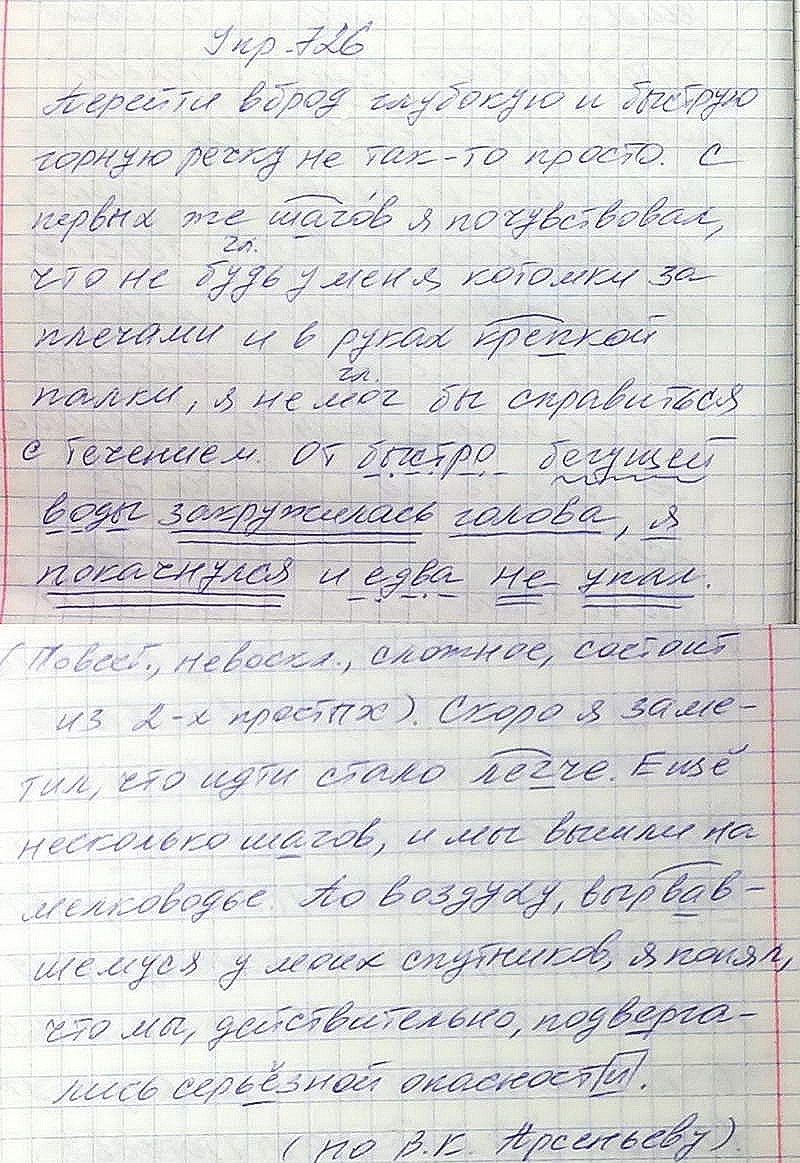 Упр. 726
Перейти вброд глубокую и быструю
горную речку не так-то просто. С
первых же шагов я почувствовал,
гл.
что не будь у меня котомки за
плечами и в руках крепкой
гл.
палки, я не мог бы справиться
с течением. От быстро бегущей
воды закружилась голова, я
покачнулся и едва не упал.
(Повест., невоскл., сложное, состоит
из 2-х простых). Скоро я заме-
тил, что идти стало легче. Ещё
несколько шагов, и мы вышли на
мелководье. По воздуху, вырвав-
шемуся у моих спутников, я понял,
что мы, действительно, подверга-
лись серьёзной опасности.
(по В.К. Арсеньеву).